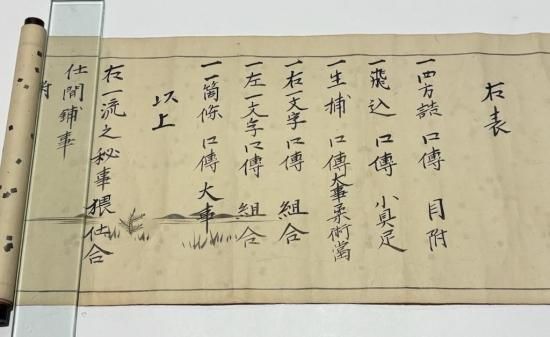 右表
一四方詰 口傳 目附
一飛込 口傳 小具足
一生捕 口傳大事柔術當
一右一文字 口傳 組合
一左一文字 口傳 組合
一一箇條 口傳 大事
以上
右一流之秘事猥仕合
仕間鋪事